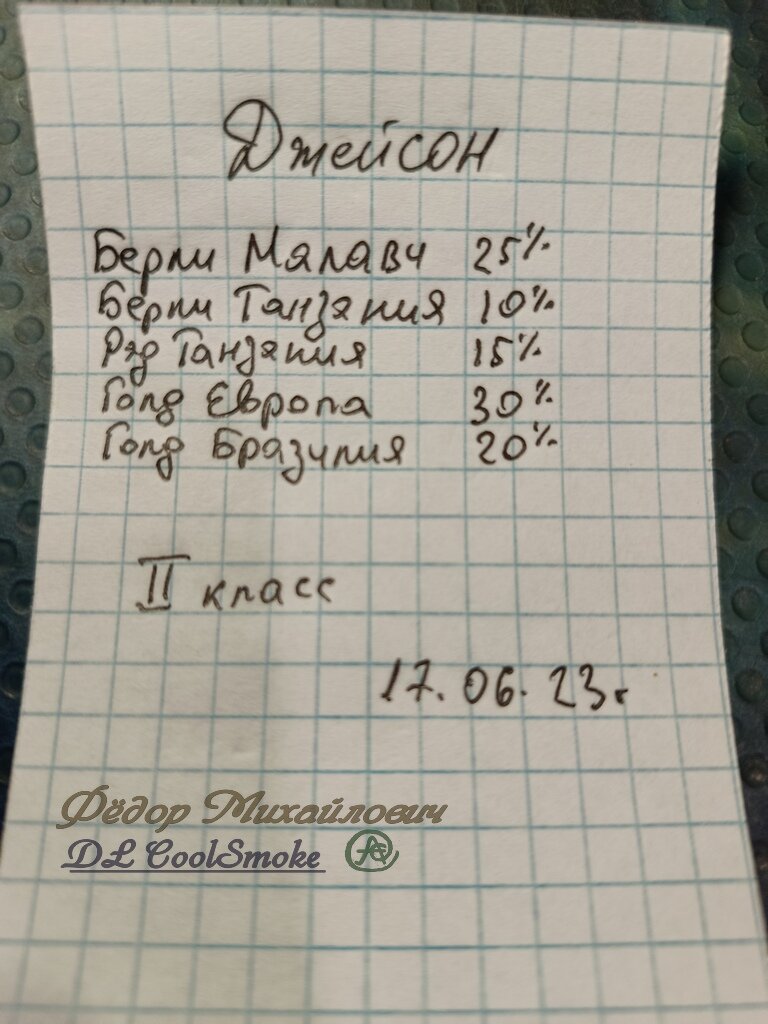 Джейсон
Берли Малави 25%
Берли Танзания 10%
Рэд Танзания 15%
Голд Европа 30%
Голд Бразилия 20%
II класс
17.06.23г
Фёдор Михайлович
DL CoolSmoke